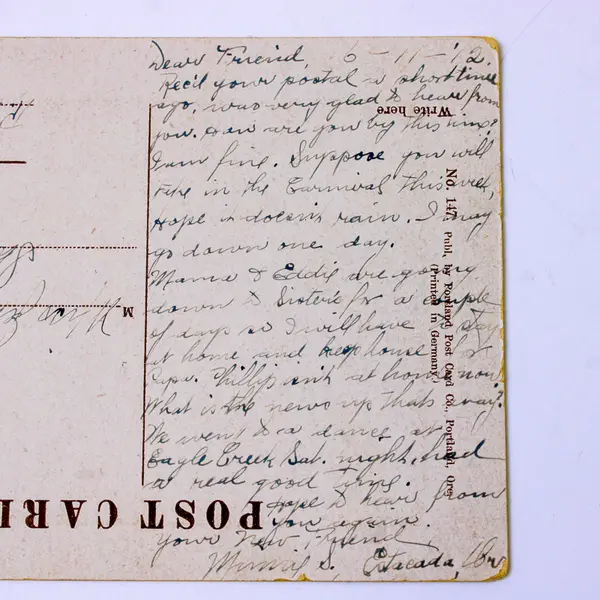 Dear Friend, 6-11-'12.
Rec'd your postal a short time
ago, was very glad to hear from
you. How are you by this time?
I am fine. Suppose you will
take in the Carnival this week,
Hope it doesn't rain. I may
go down one day.
Mama & Eddie are going
down to Sister's for a couple
of days so I will have to stay
at home and keep house for
Papa. Phillip isn't at home now.
What is the news up that way?
We went to a dance at
Eagle Creek Sat. night, had
a real good time.
Hope to hear from
you again.
Your New Friend
Minnie S. Estacada, Ore
Write here
No. 147, Publ. by Portland Post Card Co., Portland, Ore.
(Printed in Germany.)
POST CAR
M